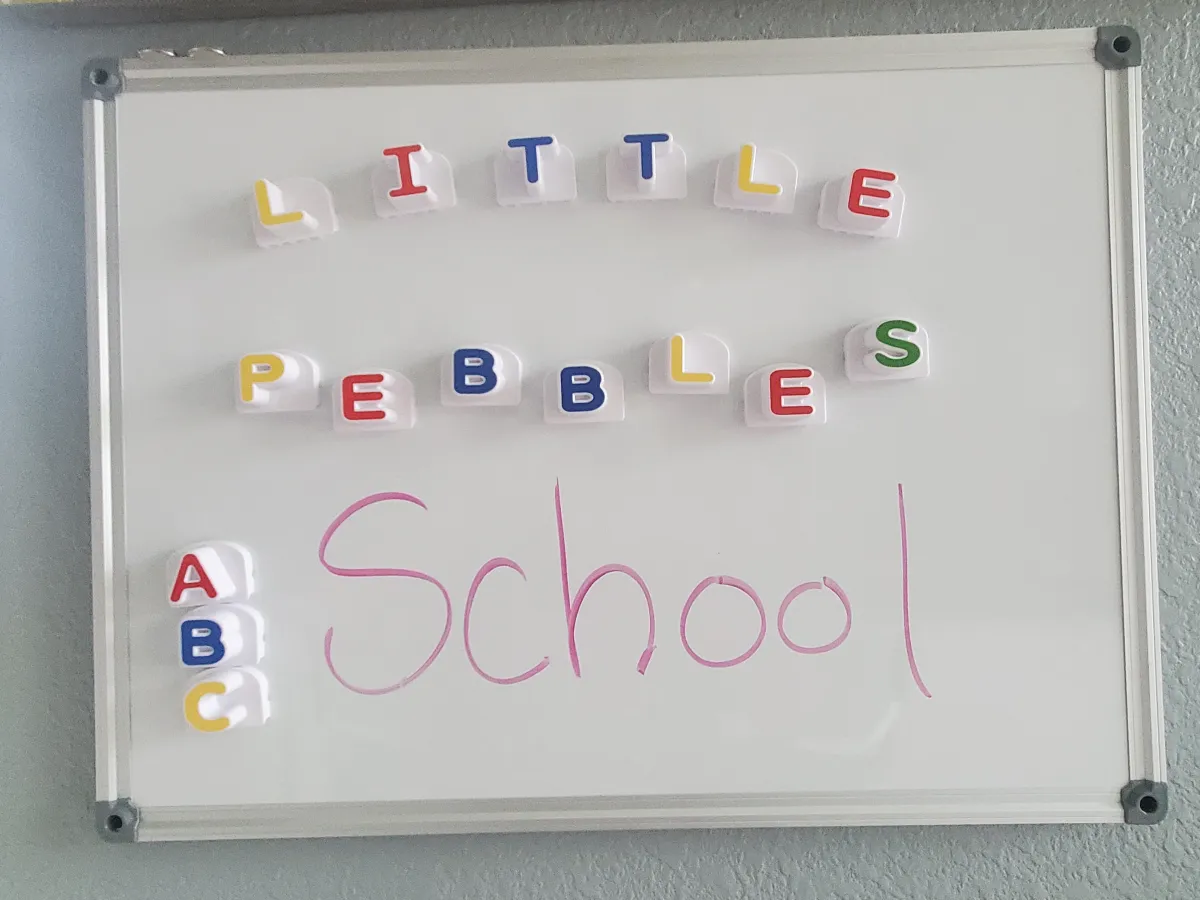 LITTLE
PEBBLES
School
A
B
C